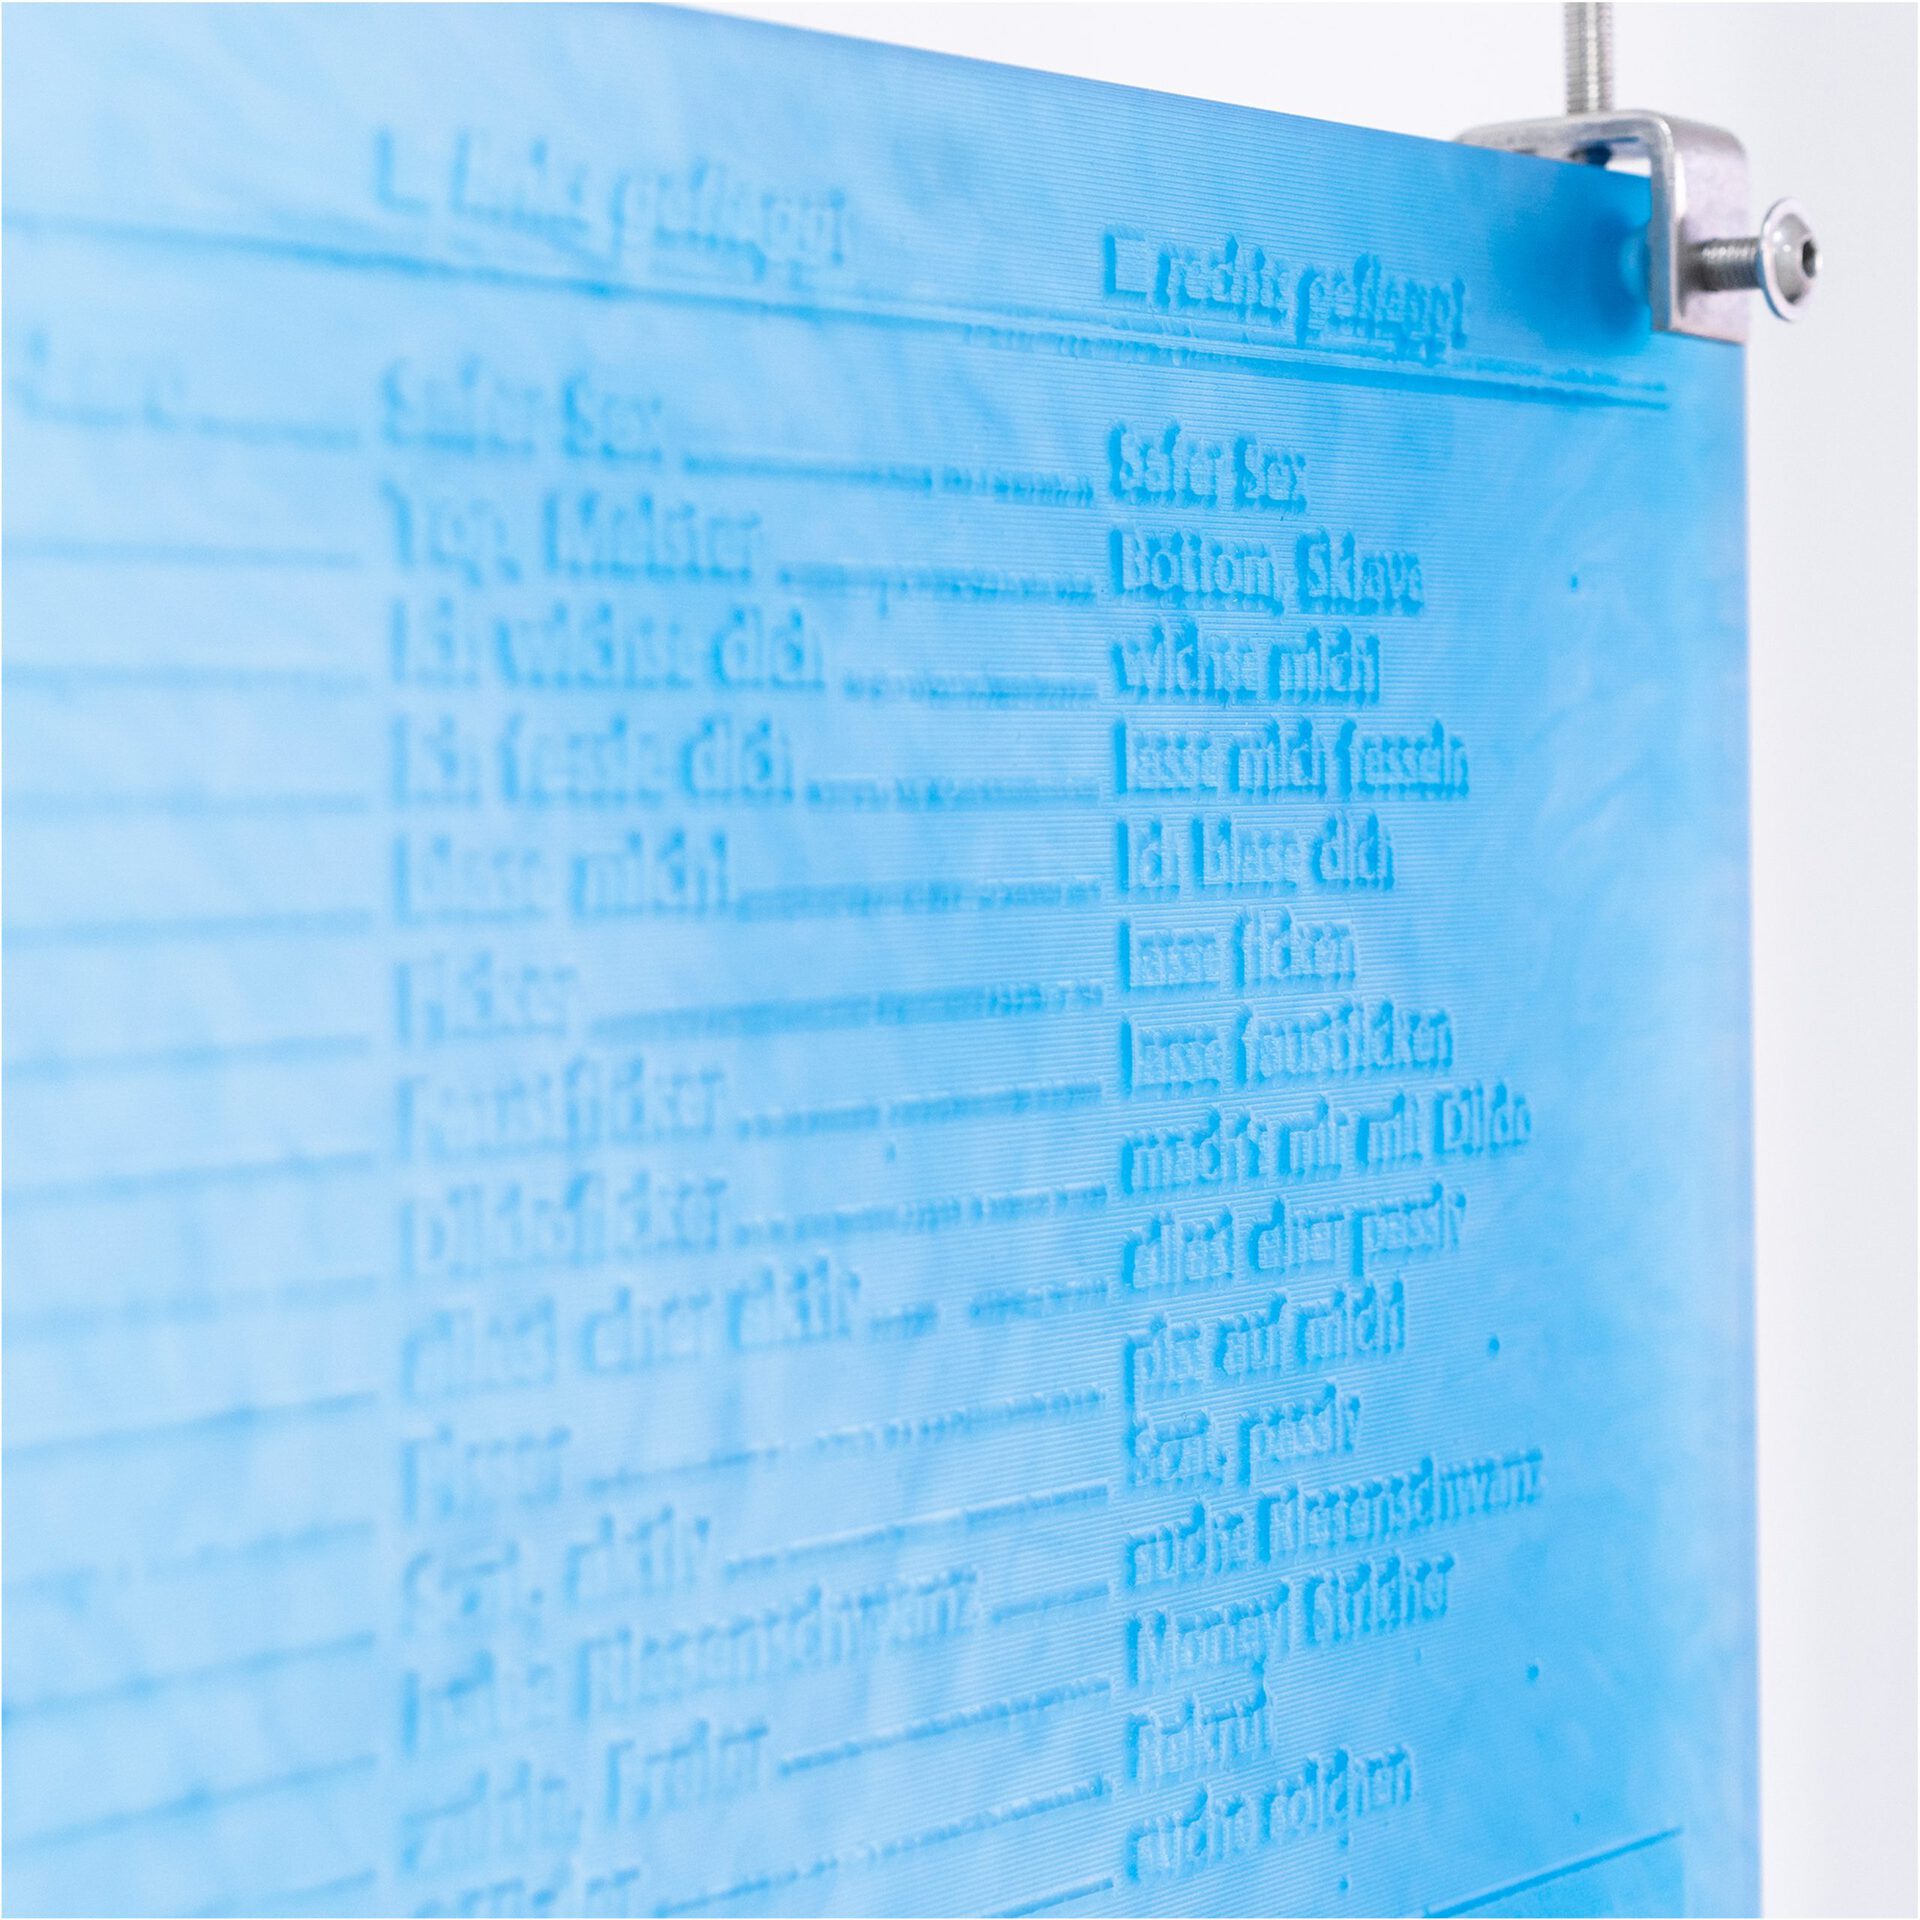 L links geflaggt
R rechts geflaggt
Safer Sex Safer Sex
Top, Meister Bottom, Sklave
Ich wichse dich wichse mich
Ich fessle dich lasse mich fesseln
blase mich! Ich blase dich
Ficker lasse ficken
Faustficker lasse faustficken
Dildoficker mach's mir mit Dildo
alles! eher aktiv alles! eher passiv
piss auf mich!
Scat, aktiv Scat, passiv
habe Riesenschwanz suche Riesenschwanz
zahle, Freier Money! Stricher
Rekrut
suche solchen